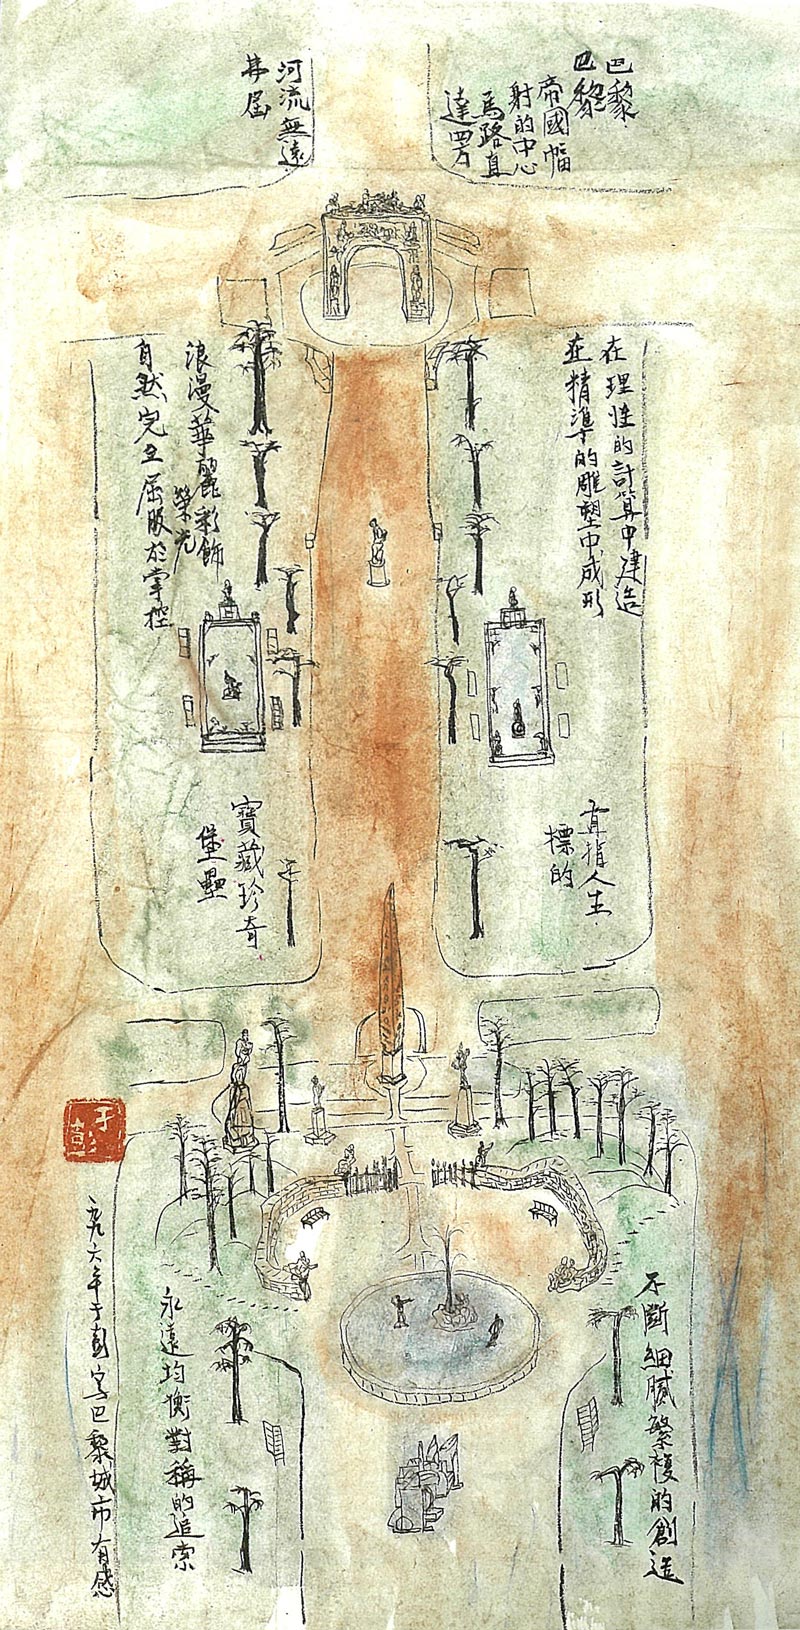 巴黎
巴黎
帝國幅
射的中心
馬路直
達四方
河流無遠
弗屆
在理性的計算中建造
在精準的雕塑中成形
浪漫華麗彩飾
榮光
自然完全屈服於掌控
直指人生
標的
寶藏珍奇
堡壘
不斷細膩繁複的創造
永遠均衡對稱的追索
九六年于彭寫巴黎城市有感
于彭